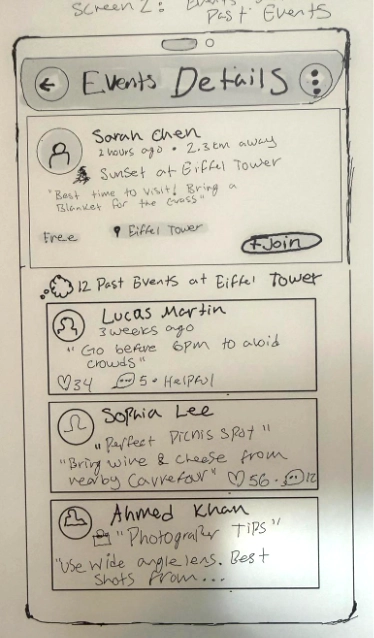 Screen 2: Events
Past Events
Events Details
Sarah Chen
2 hours ago • 2.3 km away
Sunset at Eiffel Tower
"Best time to visit! Bring a
Blanket for the Grass"
Free
Eiffel Tower
+Join
12 Past Events at Eiffel Tower
Lucas Martin
3 weeks ago
"Go before 6pm to avoid
crowds"
34 5 • Helpful
Sophia Lee
"Perfect Picnis Spot"
"Bring wine & cheese from
nearby Carrefour" 56 • 12
Ahmed Khan
"Photografer Tips"
"Use wide angle lens. Best
shots from...